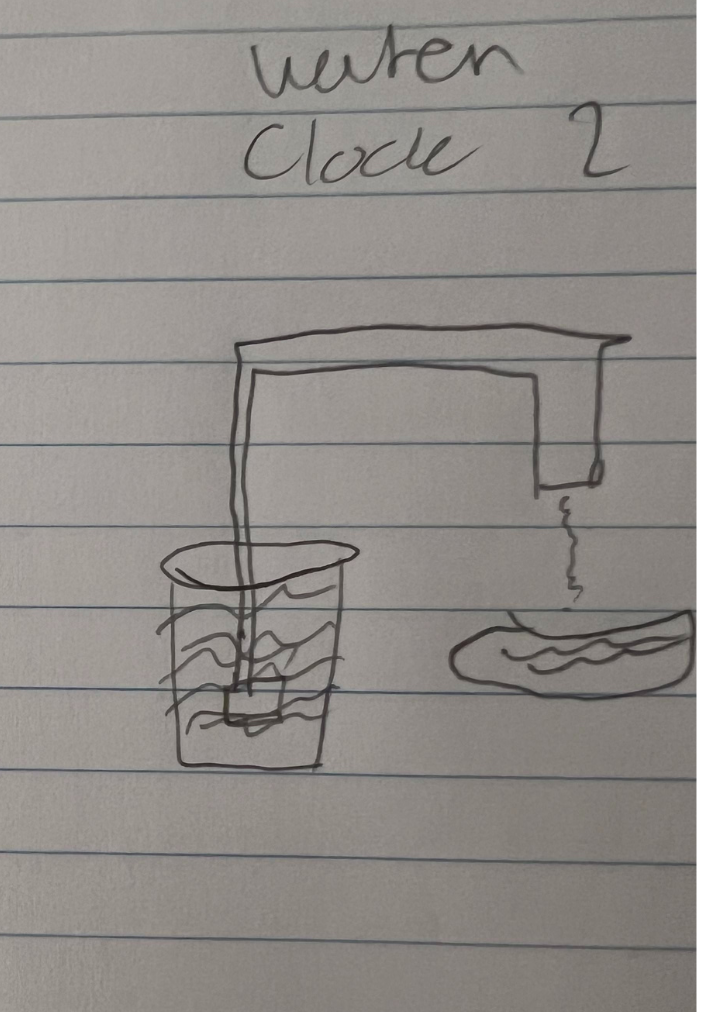 water
Clock 2